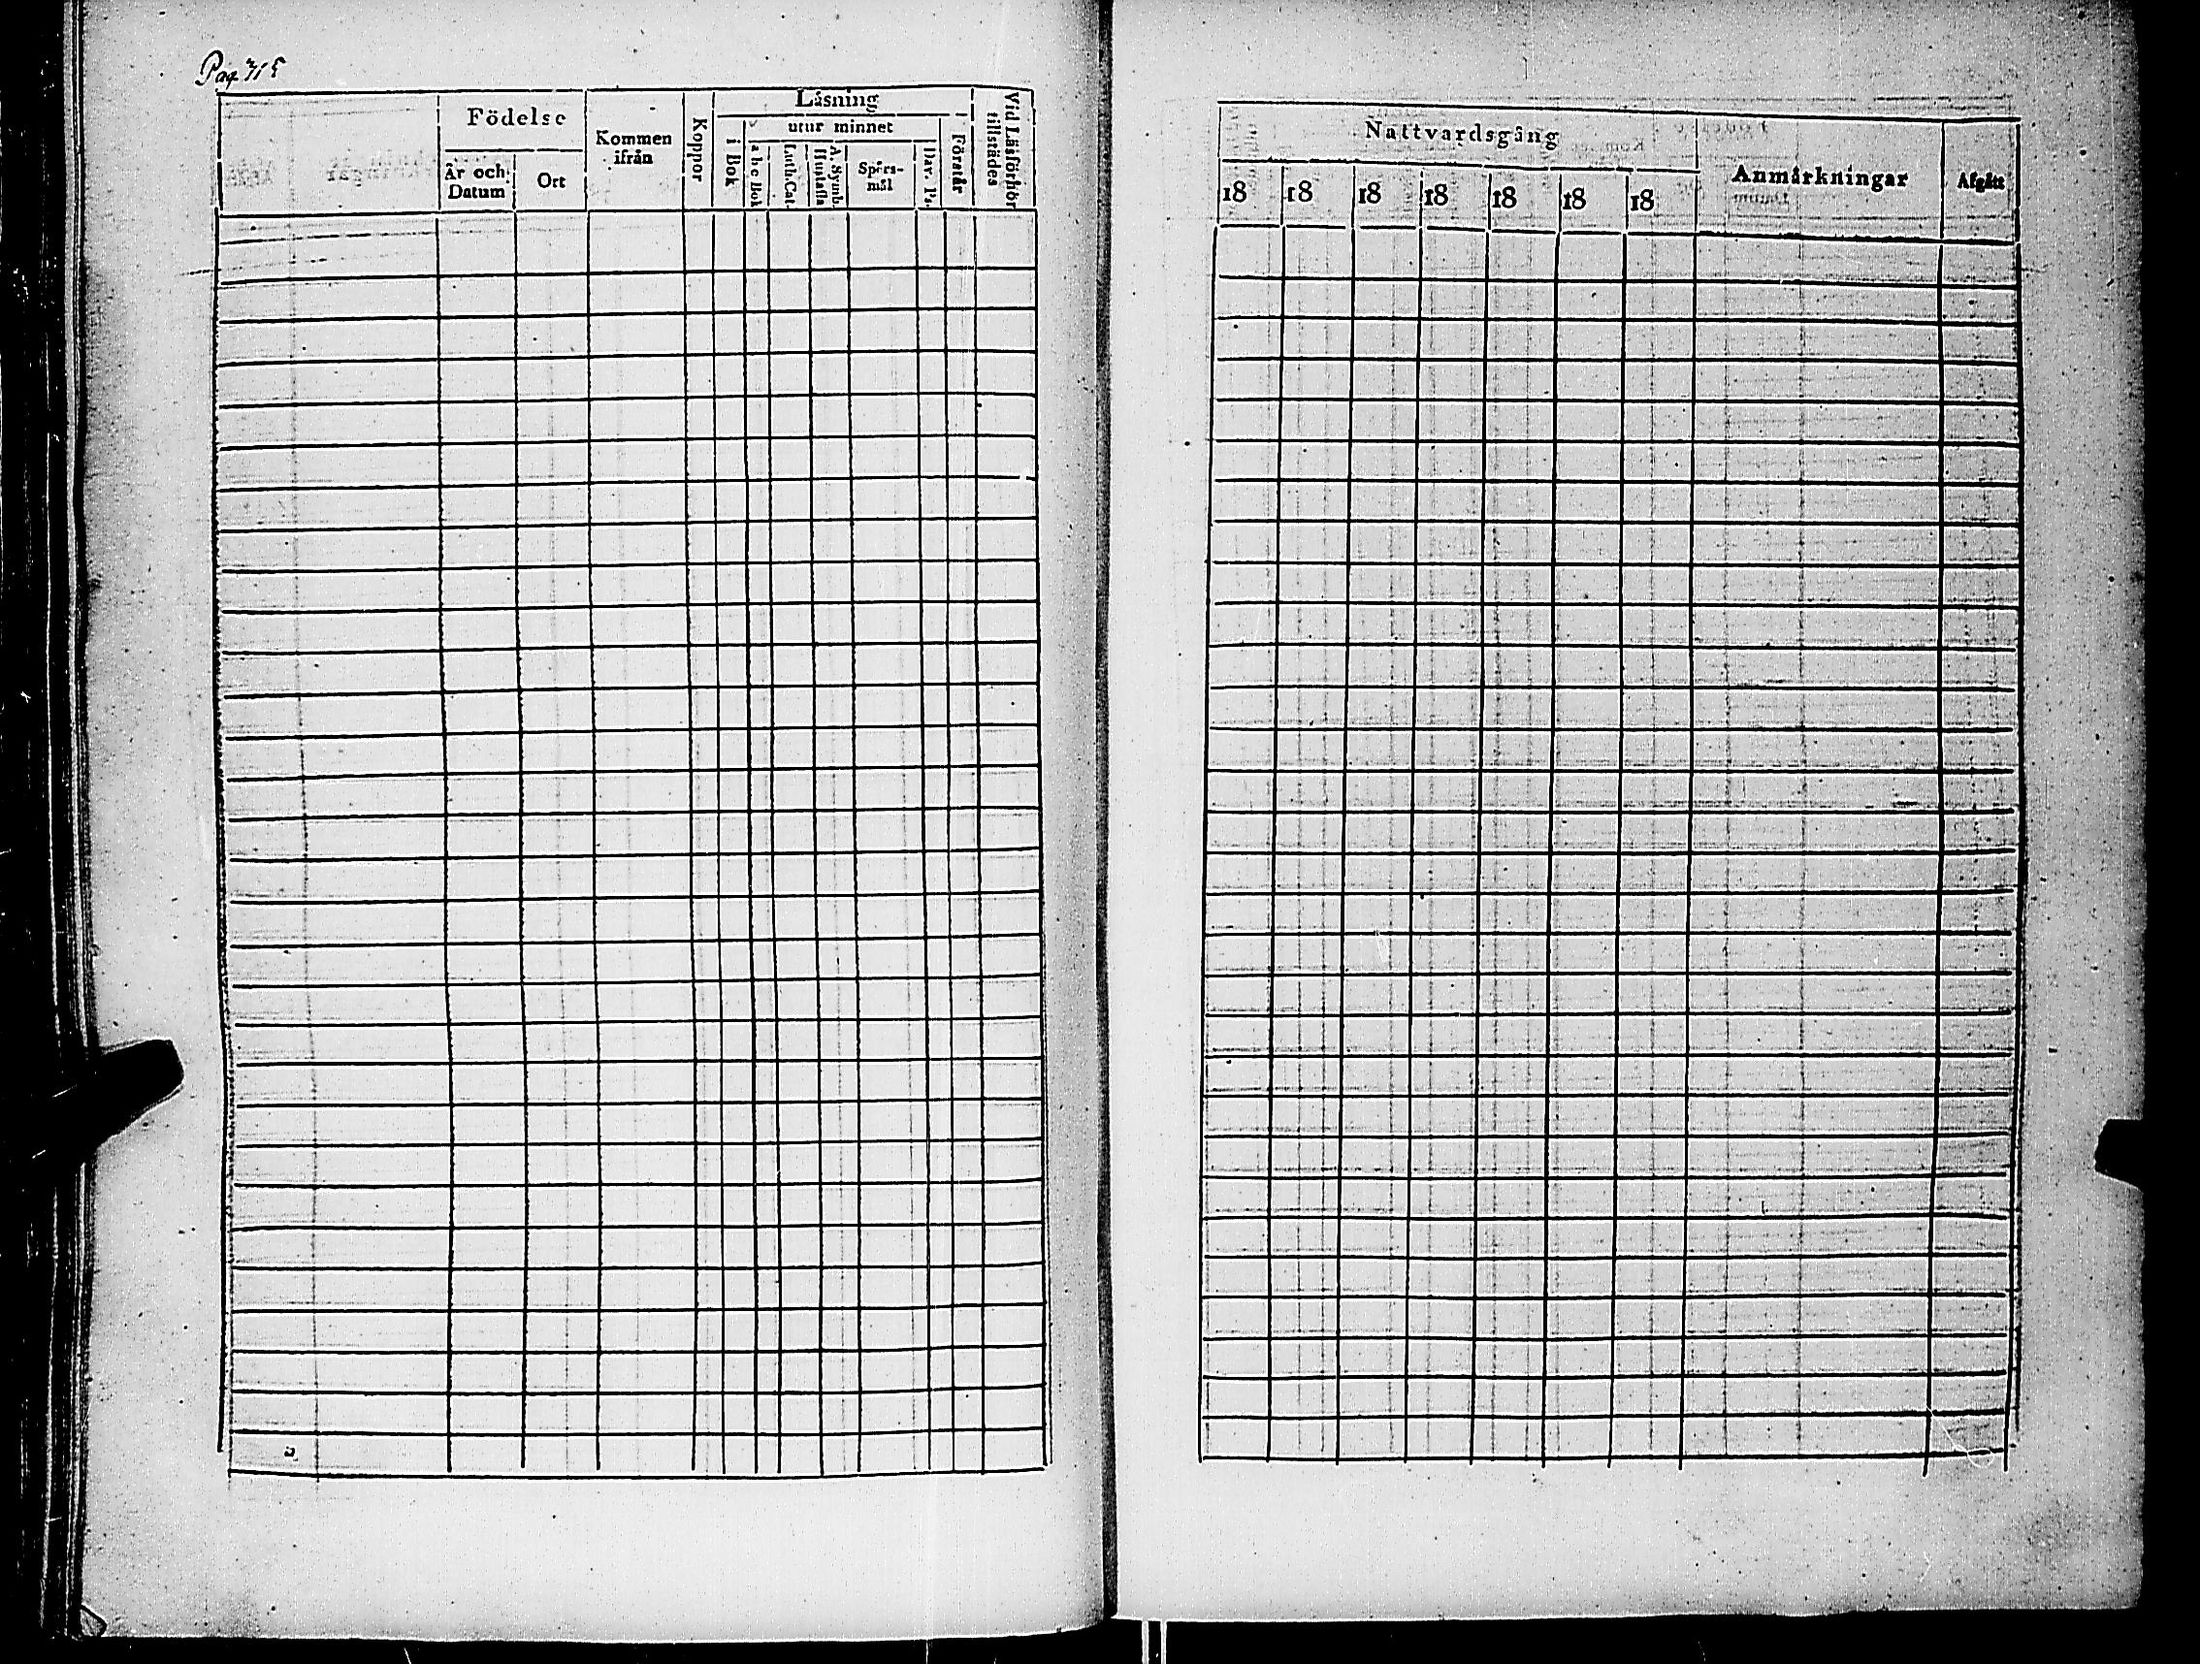 Pag. 715
Födelse
År och Datum
Ort
Kommen ifrån
Koppor
Läsning
i Bok
utur minnet
a b c Bok
Luth. Cat.
A. Symb. Hustafla
Spörs-mål
Dav. Ps.
Förstår
Vid Läsförhör tillstädes
Nattvardsgång
18 18 18 18 18 18 18
Anmärkningar
Afgått